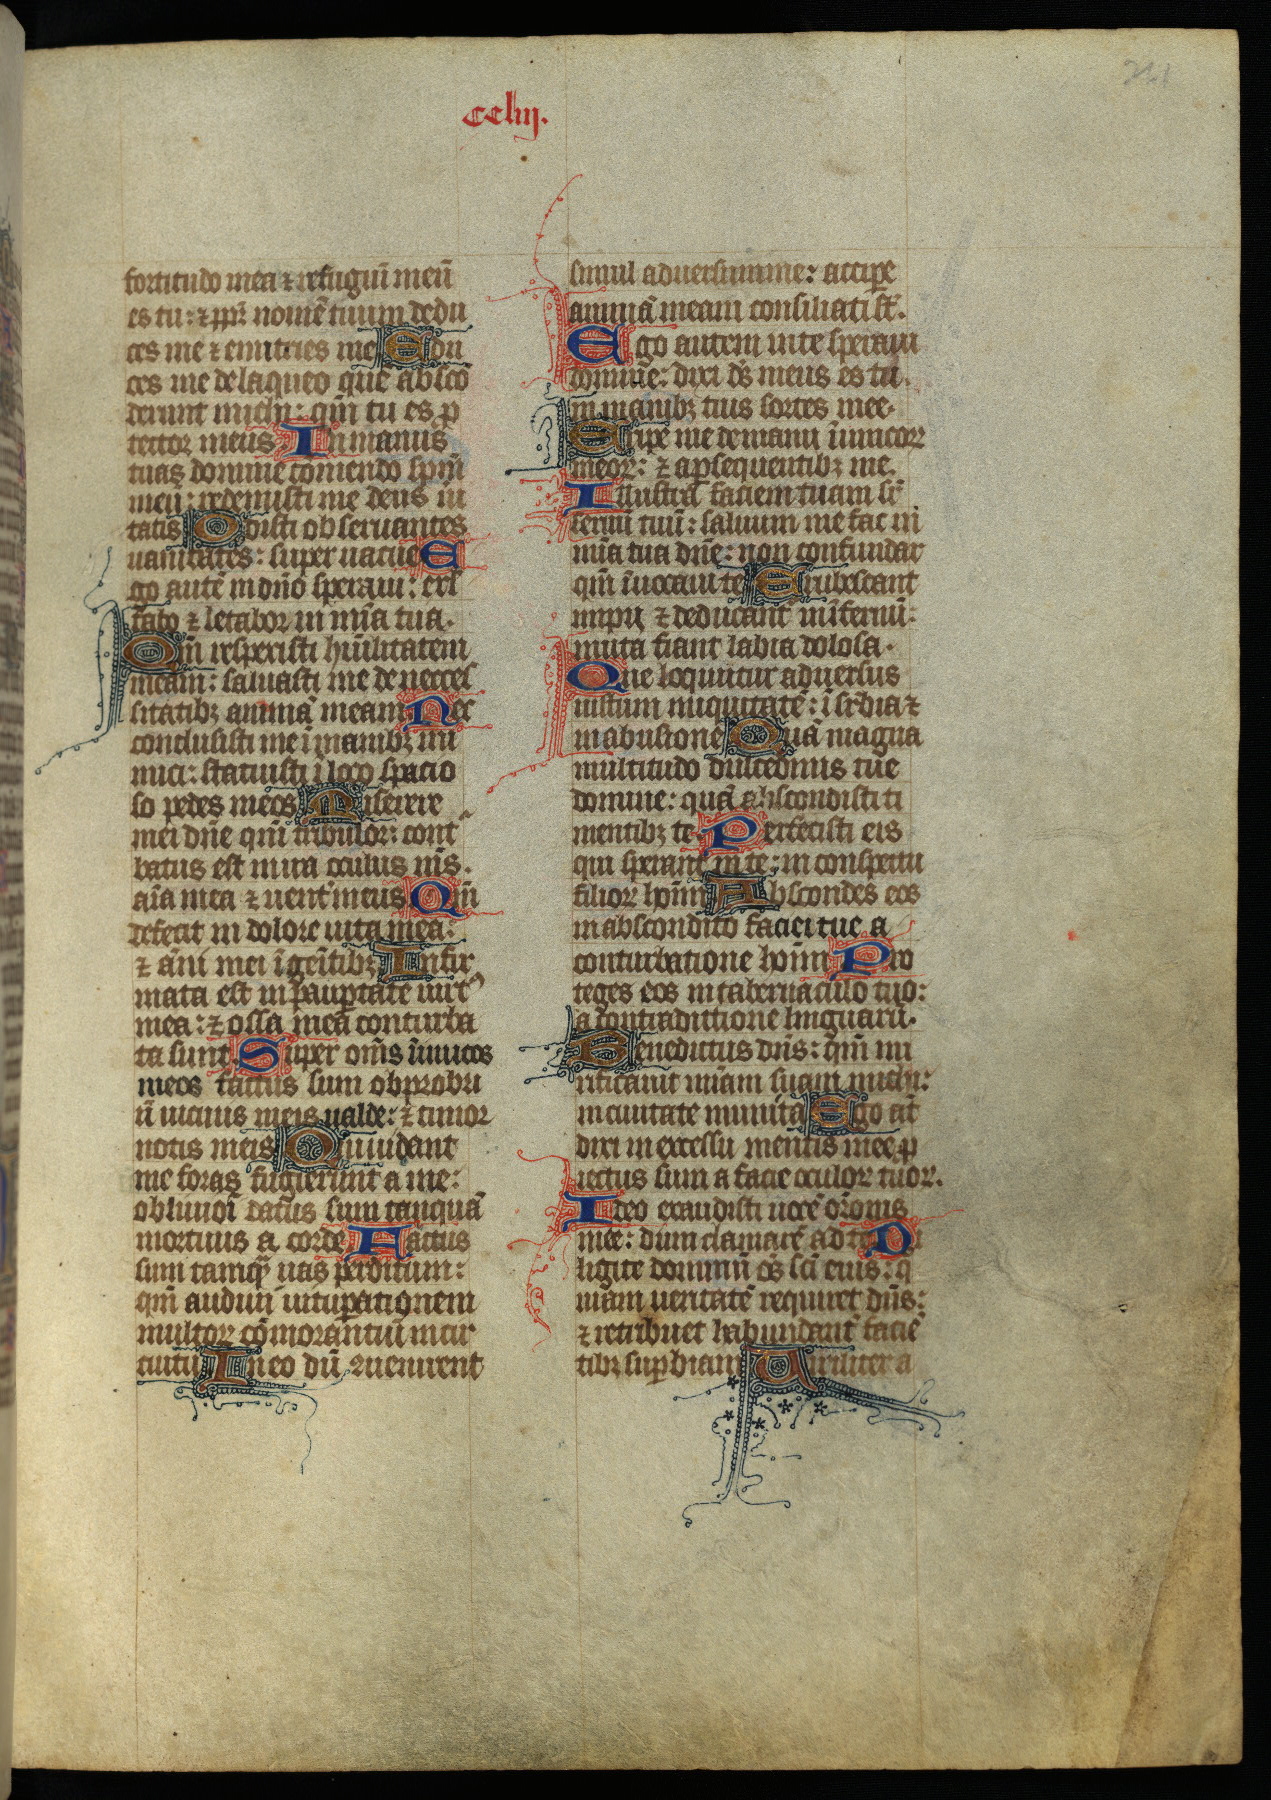 ccliii.
fortitudo mea ⁊ refugiū meū
es tu: ⁊ ꝓpt̄ nomē tuum dedu
ces me ⁊ enutries me Edu
ces me de laqueo quē absco
derunt michi: qm̄ tu es ꝓ
tector meus. In manus
tuas domine comendo spm̄
meū: redemisti me deus ue
tatis Odisti observantes
uanitates: super uacue E
go autē in dn̄o speraui: exl
tabo ⁊ letabor in mīa tua.
Qm̄ respexisti hūilitatem
meam: saluasti me de neces
sitatibꝫ animā meam Nec
conclusisti me ī manibꝫ ini
mici: statuisti ī loco spacio
so pedes meos Miserere
mei dn̄e qm̄ tribulor: cont
batus est in ira oculus m̄s.
aīa mea ⁊ uent̄ meus Qm̄
defecit in dolore uita mea:
⁊ āni mei ī gemitibꝫ Infir
mata est in paupertate uirt
mea: ⁊ ossa mea conturba
ta sunt. Super om̄s īimicos
meos factus sum obprobri
ū uicinis meis ualde: ⁊ timor
notis meis Qui uidebant
me foras fugierunt a me:
obliuioī datus sum tanquā
mortuus a corde Factus
sum tamqꝫ uas perditum:
qm̄ audiui uituꝑationem
multoꝝ cōmorantiū in cir
cuitu In eo dū ꝯuenirent
simul aduersum me: accipe
animā meam consiliati st̄.
Ego autem in te speraui
domine: dixi ds̄ meus es tu.
in manibꝫ tuis sortes mee.
Eripe me de manu īimicoꝝ
meoꝝ: ⁊ a ꝑsequentibꝫ me.
Illustra faciem tuam sr̄
seruū tuū: saluum me fac in
mīa tua dn̄e: non confundar
qm̄ īuocaui te Erubescant
impij ⁊ deducant̄ in īfernū:
muta fiant labia dolosa.
Que loquntur aduersus
iustum iniquitatē: ī sꝑbia ⁊
in abusione Quā magna
multitudo dulcedinis tue
domine: quā abscondisti ti
mentibꝫ te. Perfecisti eis
qui sperant in te: in conspectu
filioꝝ hoīm Abscondes eos
in abscondito faciei tue a
conturbatione hoīm Pro
teges eos in tabernaculo tuo:
a contradictione linguarū.
Benedictus dn̄s: qm̄ mi
rificauit mīam suam michi:
in ciuitate munita Ego aū
dixi in excessu mentis mee ꝓ
iectus sum a facie oculoꝝ tuoꝝ.
Ideo exaudisti uocē or̄onis
mee: dum clamarē ad te Di
ligite dominū oēs scī eius: q
niam ueritatē requiret dn̄s:
⁊ retribuet habundant̄ faciē
tibꝫ suꝑbiam Uiriliter a